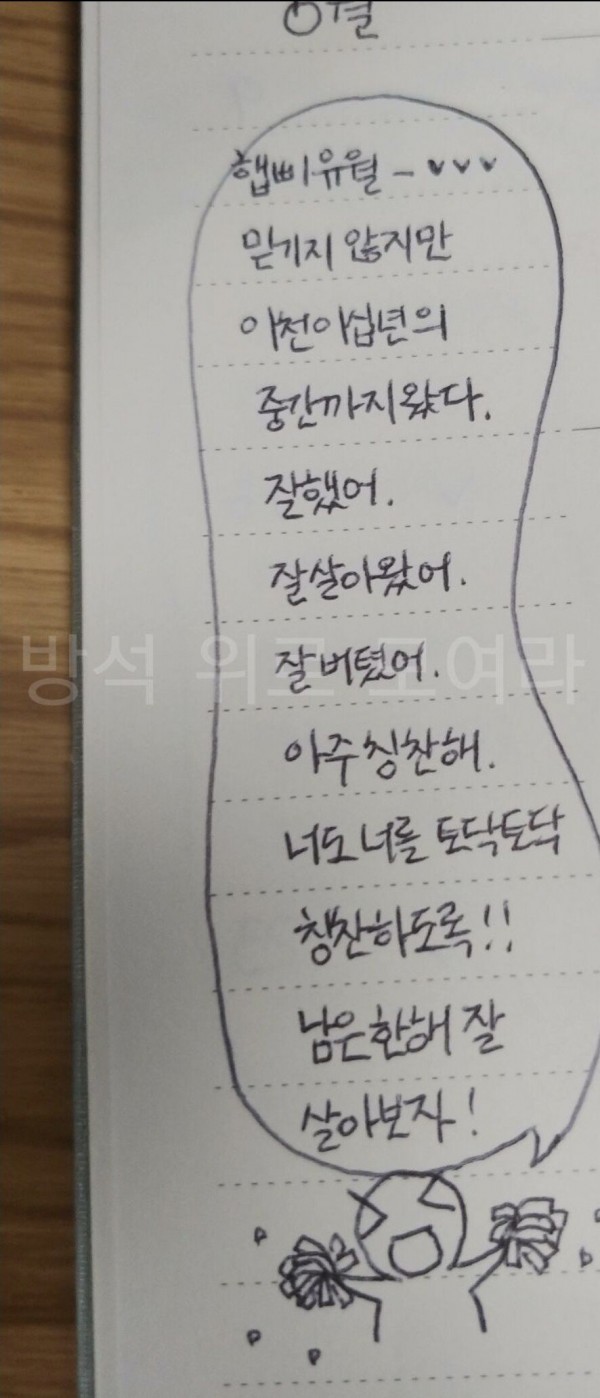 6월
햅삐유월 - ♥♥♥
믿기지 않지만
이천이십년의
중간까지왔다.
잘했어.
잘살아왔어.
잘버텼어.
방석 위로 모여라
아주칭찬해.
너도너를 토닥토닥
칭찬하도록!!
남은한해 잘
살아보자!